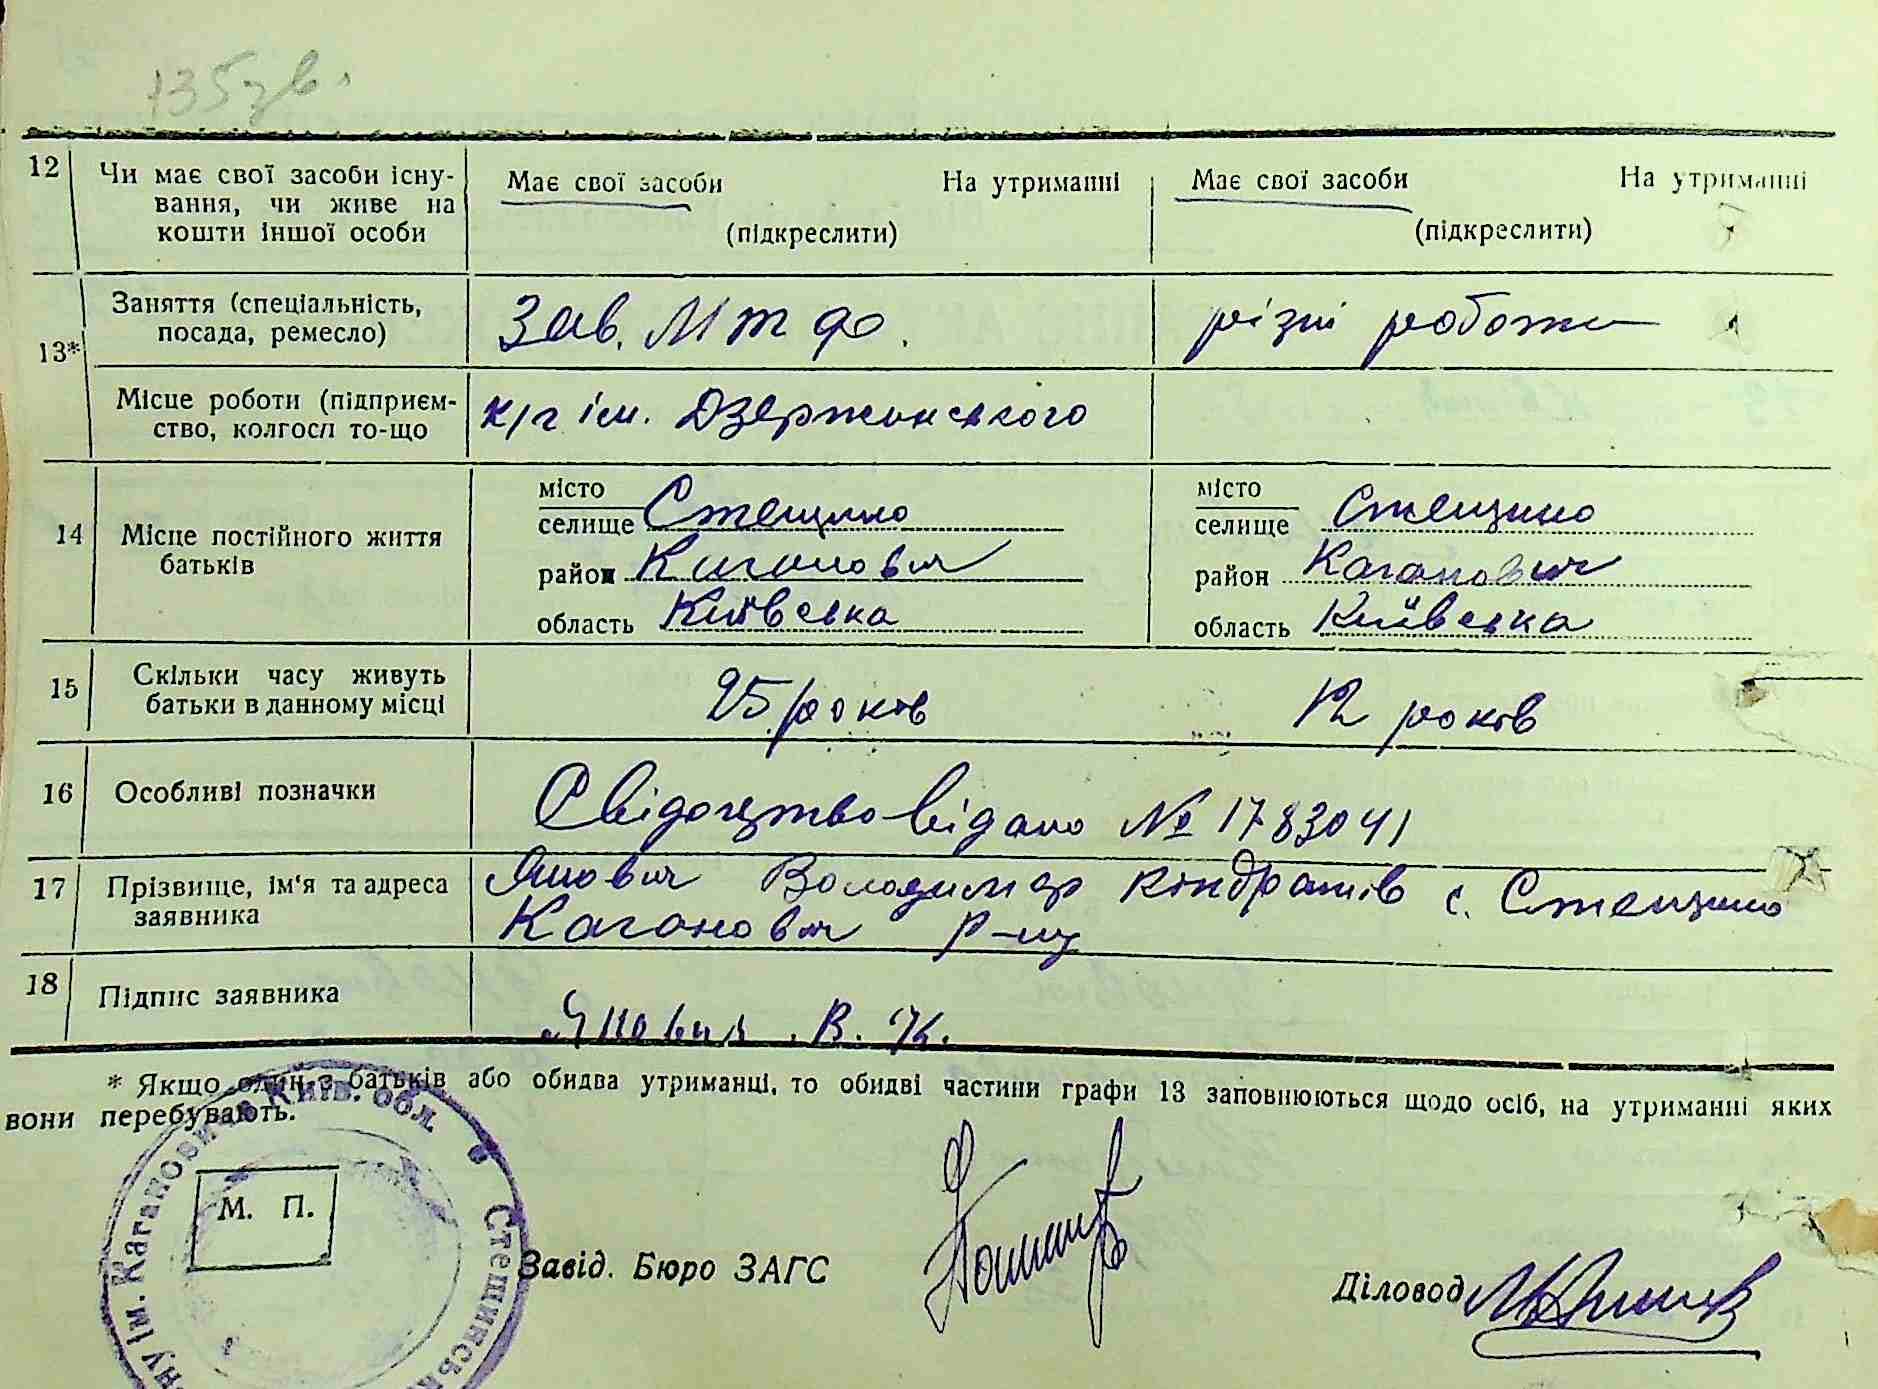 135 зв.
12 Чи має свої засоби існу- Має свої засоби На утриманні Має свої засоби На утриманні
вання, чи живе на
кошти іншої особи (підкреслити) (підкреслити)
13* Заняття (спеціальність, Зав. М т ф. різні роботи
посада, ремесло)
Місце роботи (підприєм- к/г ім. Дзержинського
ство, колгосп то-що
14 Місце постійного життя батьків
місто Стещино місто Стещино
селище селище
район Каганович район Каганович
область Київська область Київська
15 Скільки часу живуть 25 років 12 років
батьки в данному місці
16 Особливі позначки Свідоцтво видано № 1783041
17 Прізвище, ім'я та адреса Янович Володимир Кіндратів с. Стещино
заявника Каганович р-ну
18 Підпис заявника Янович. В. К.
* Якщо один з батьків або обидва утриманці, то обидві частини графи 13 заповнюються щодо осіб, на утриманні яких
вони перебувають.
ну ім. Кагановича Київ. обл. Стещинськ
М. П.
Завід. Бюро ЗАГС
Діловод